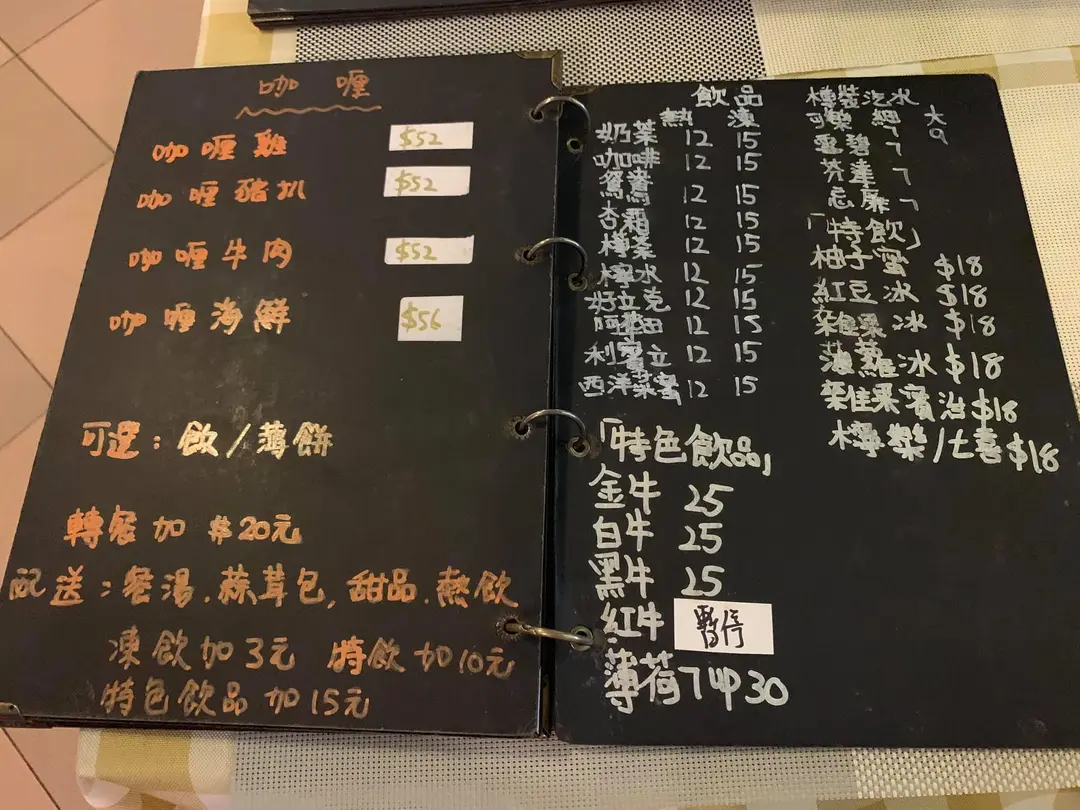 咖喱
咖喱雞 $52
咖喱豬扒 $52
咖喱牛肉 $52
咖喱海鮮 $56
可選：飲/薄餅
轉餐加 $20元
配送：餐湯.蒜茸包,甜品.熱飲
凍飲加3元 特飲加10元
特色飲品加15元
飲品
熱 凍
奶茶 12 15
咖啡 12 15
鴛鴦 12 15
杏霜 12 15
檸茶 12 15
檸水 12 15
好立克 12 15
阿華田 12 15
利賓立 12 15
西洋菜蜜 12 15
「特色飲品」
金牛 25
白牛 25
黑牛 25
紅牛 暫停
薄荷TUP 30
樽裝汽水
可樂 細7 大9
雪碧 7
芬達 7
忌廉 7
「特飲」
柚子蜜 $18
紅豆冰 $18
雜果冰 $18
菠蘿冰 $18
雜果賓治 $18
檸樂/七喜 $18